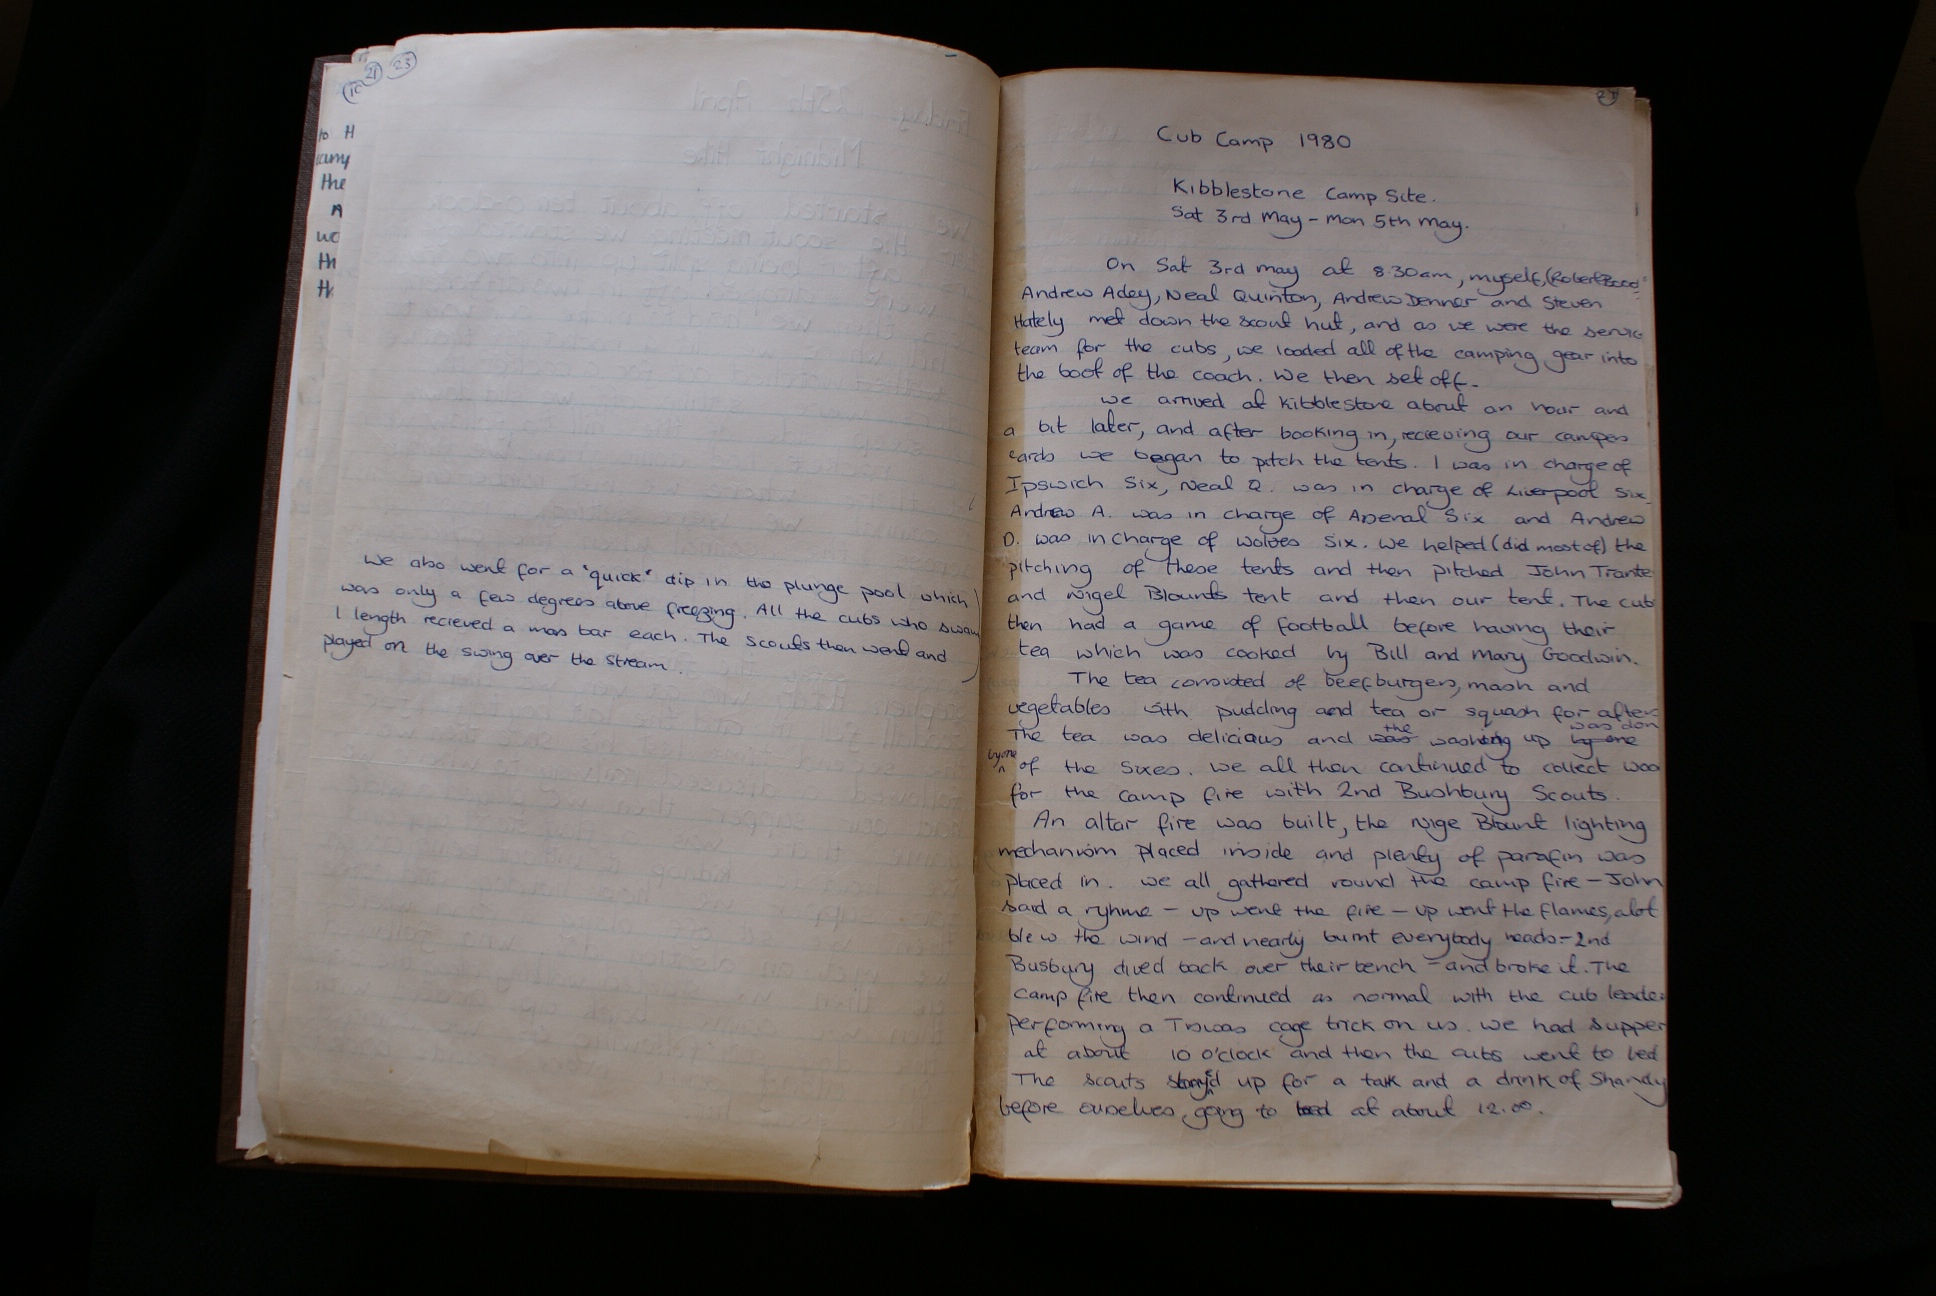 21
23
to H
any
the
A
wo
th
th
We also went for a "quick" dip in the plunge pool which
was only a few degrees above freezing. All the cubs who swam
1 length recieved a mars bar each. The scouts then went and
played on the swing over the stream.
Cub Camp 1980
Kibblestone Camp Site.
Sat 3rd May - Mon 5th May.
On Sat 3rd May at 8.30am, myself, (Robert
Andrew Adey, Neal Quinton, Andrew Denner and Steven
Hately met down the scout hut, and as we were the servic
team for the cubs, we loaded all of the camping gear into
the boot of the coach. We then set off.
We arrived at Kibblestone about an hour and
a bit later, and after booking in, recieving our campers
cards we began to pitch the tents. I was in charge of
Ipswich Six, Neal Q. was in charge of Liverpool Six
Andrew A. was in charge of Arsenal Six and Andrew
D. was in charge of Wolves Six. We helped (did most of) the
pitching of these tents and then pitched John Trante
and Nigel Blounts tent and then our tent. The cub
then had a game of football before having their
tea which was cooked by Bill and Mary Goodwin.
The tea consisted of beefburgers, mash and
vegetables with pudding and tea or squash for afters
The tea was delicious and was the washing up by one was don
by one of the sixes. We all then continued to collect woo
for the camp fire with 2nd Bushbury Scouts.
An altar fire was built, the Nige Blount lighting
mechanism placed inside and plenty of parafin was
placed in. We all gathered round the camp fire - John
said a ryhme - up went the fire - up went the flames, alot
blew the wind - and nearly burnt everybody heads - 2nd
Busbury dived back over their bench - and broke it. The
camp fire then continued as normal with the cub leader
performing a cage trick on us. We had supper
at about 10 o'clock and then the cubs went to bed
The scouts stayed up for a talk and a drink of Shandy
before ourselves, going to bed at about 12.00.